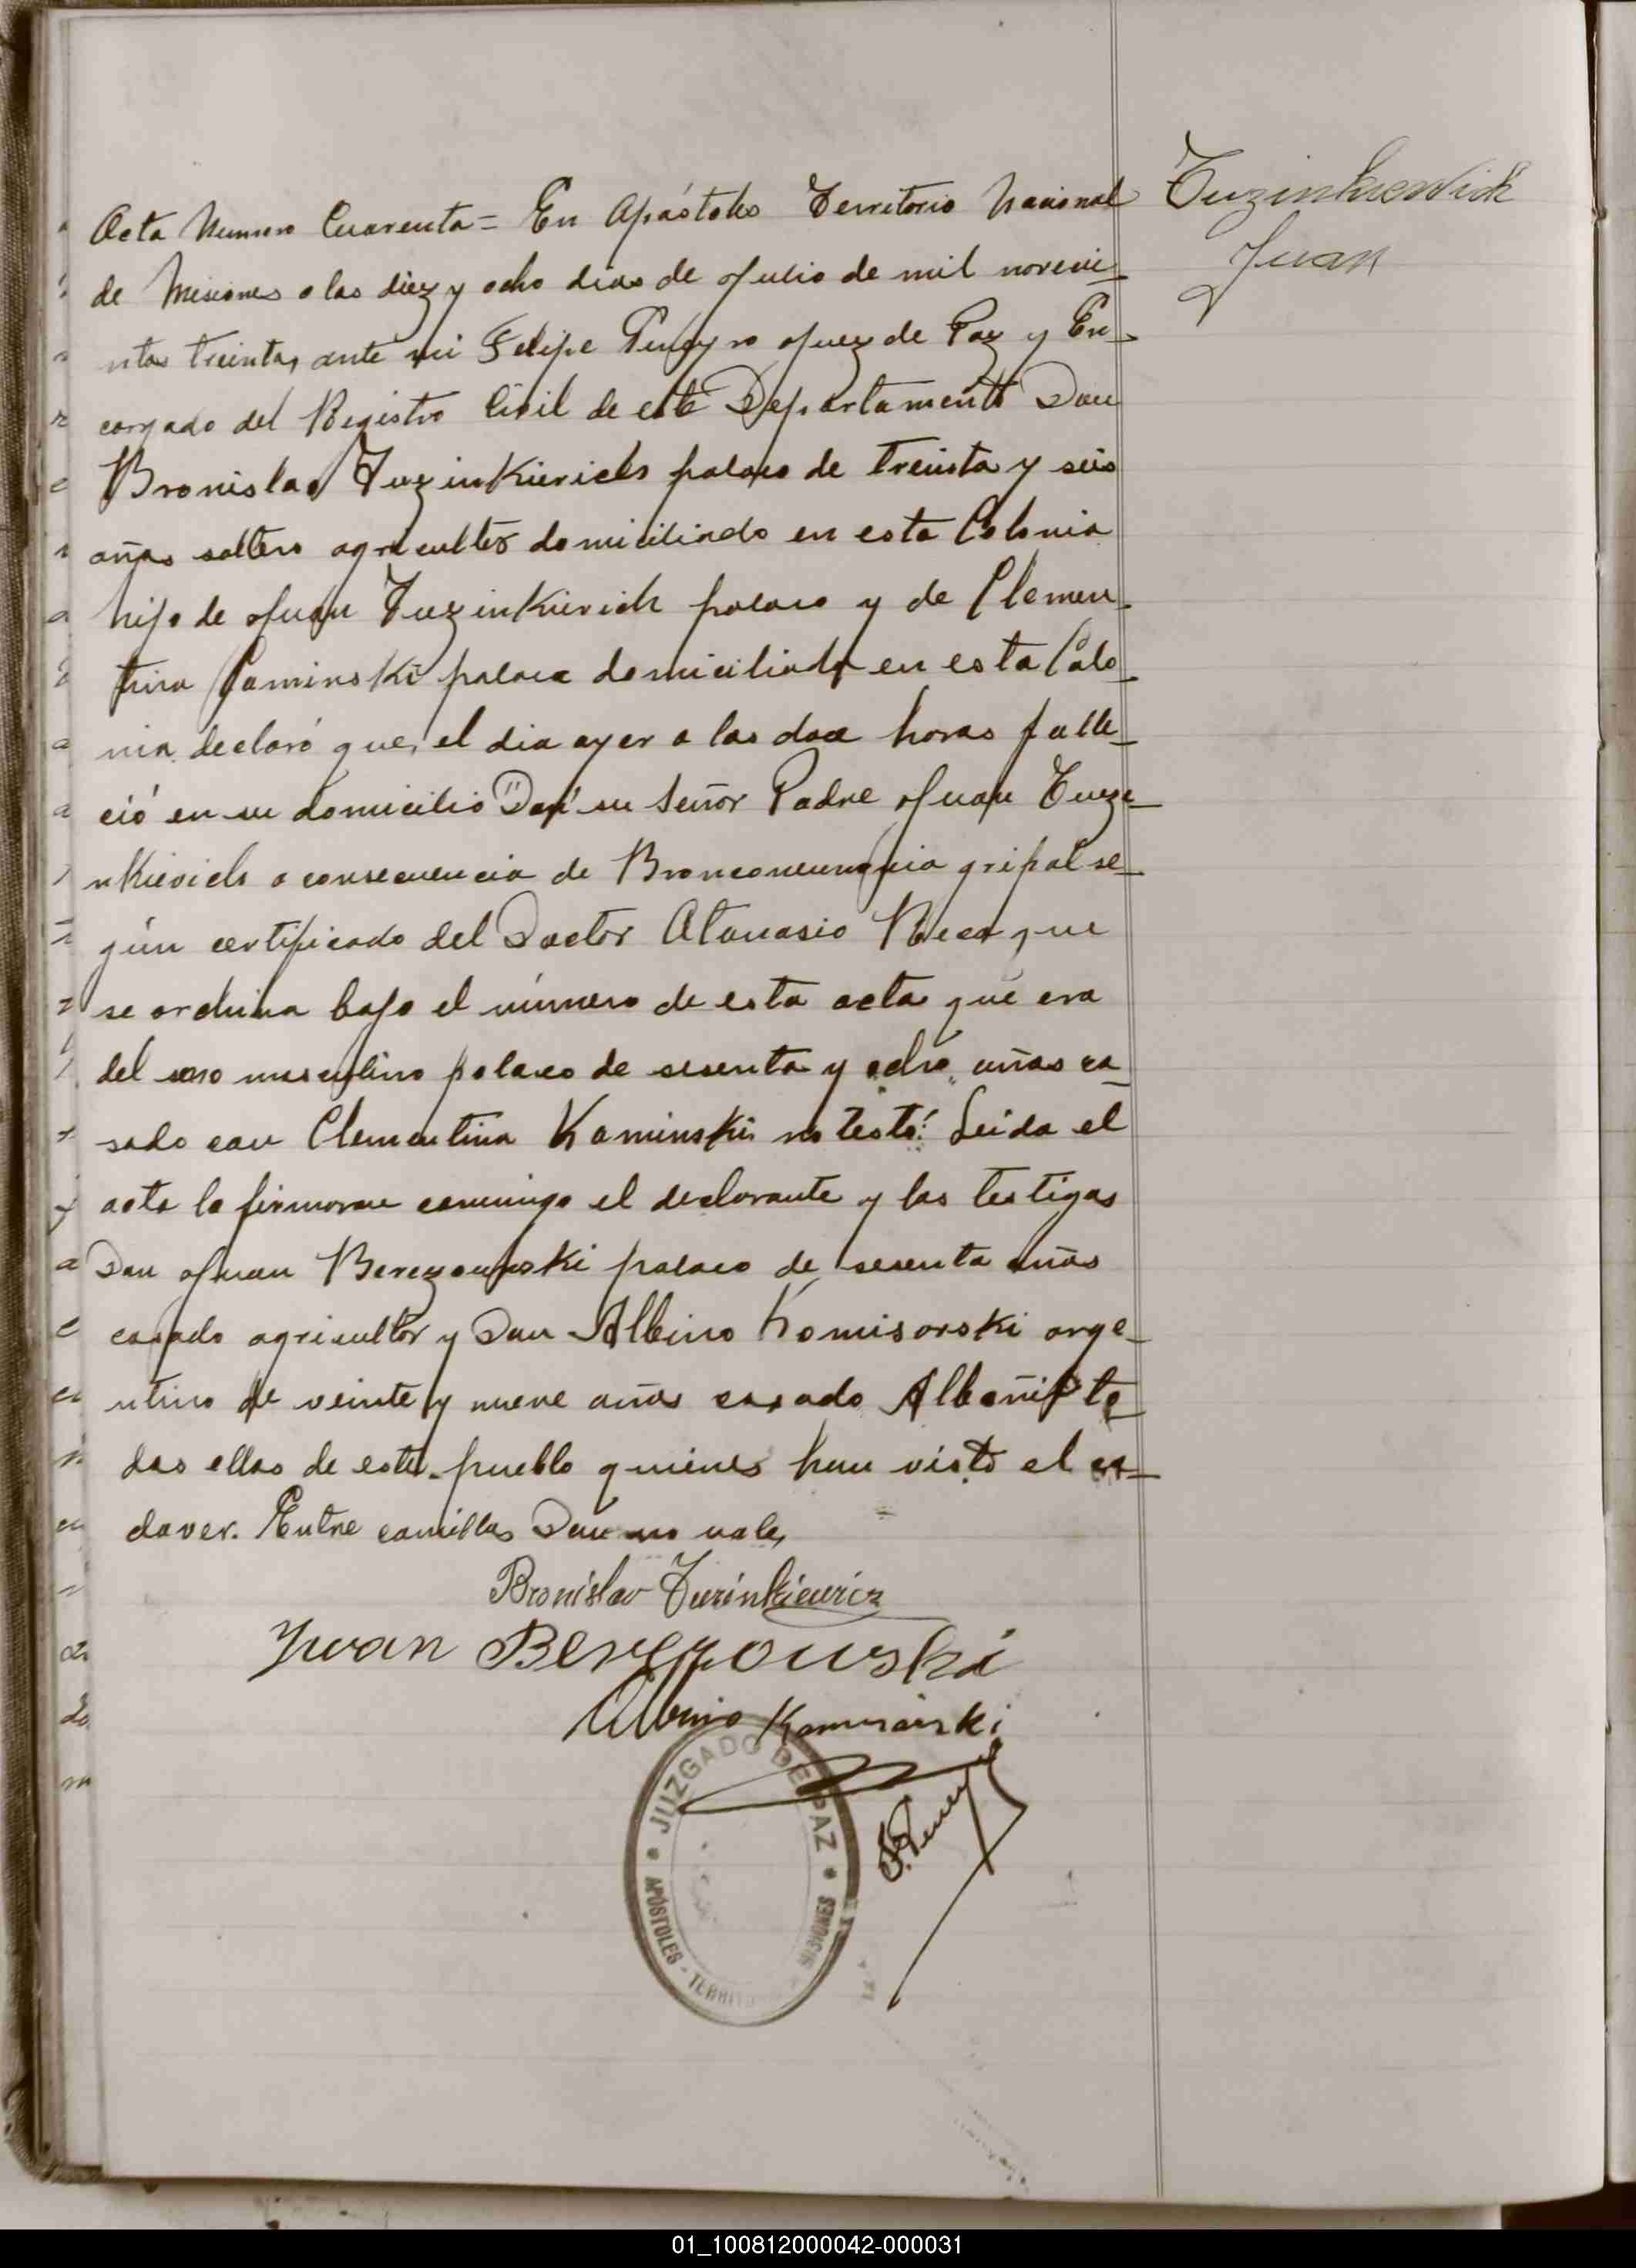 Tuzinkiewich
Juan
Acta Numero Cuarenta = En Apóstoles Territorio Nacional
de Misiones a los diez y ocho dias de Julio de mil novecie-
ntos treinta, ante mi Felipe Peneyro Juez de Paz y En-
cargado del Registro Civil de este Departamento Don
Bronislao Tuzinkievich polaco de treinta y seis
años soltero agricultor domiciliado en esta Colonia
hijo de Juan Tuzinkievich polaco y de Clemen-
tina Caminski polaca domiciliada en esta Colo-
nia declaró que, el dia ayer a las doce horas falle-
ció en su domicilio "Don" su Señor Padre Juan Tuzi-
nkievich a consecuencia de Bronconeumonia gripal se-
gún certificado del Doctor Atanasio que
se archiva bajo el número de esta acta que era
del sexo masculino polaco de sesenta y ocho años ca-
sado con Clementina Kaminski no testó. Leida el
acta la firmaron conmigo el declarante y los testigos
Don Juan Berezowski polaco de sesenta años
casado agricultor y Don Albino Komisarski arge-
ntino de veinte y nueve años casado Albañil to-
dos ellos de este pueblo quienes han visto el ca-
daver. Entre comillas Don no vale,
Bronislav Tuzinkiewicz
Juan Berezowski
Albino Komisarski
F. Peneyro
JUZGADO DE PAZ
APÓSTOLES - TERRITO MISIONES
01_100812000042-000031